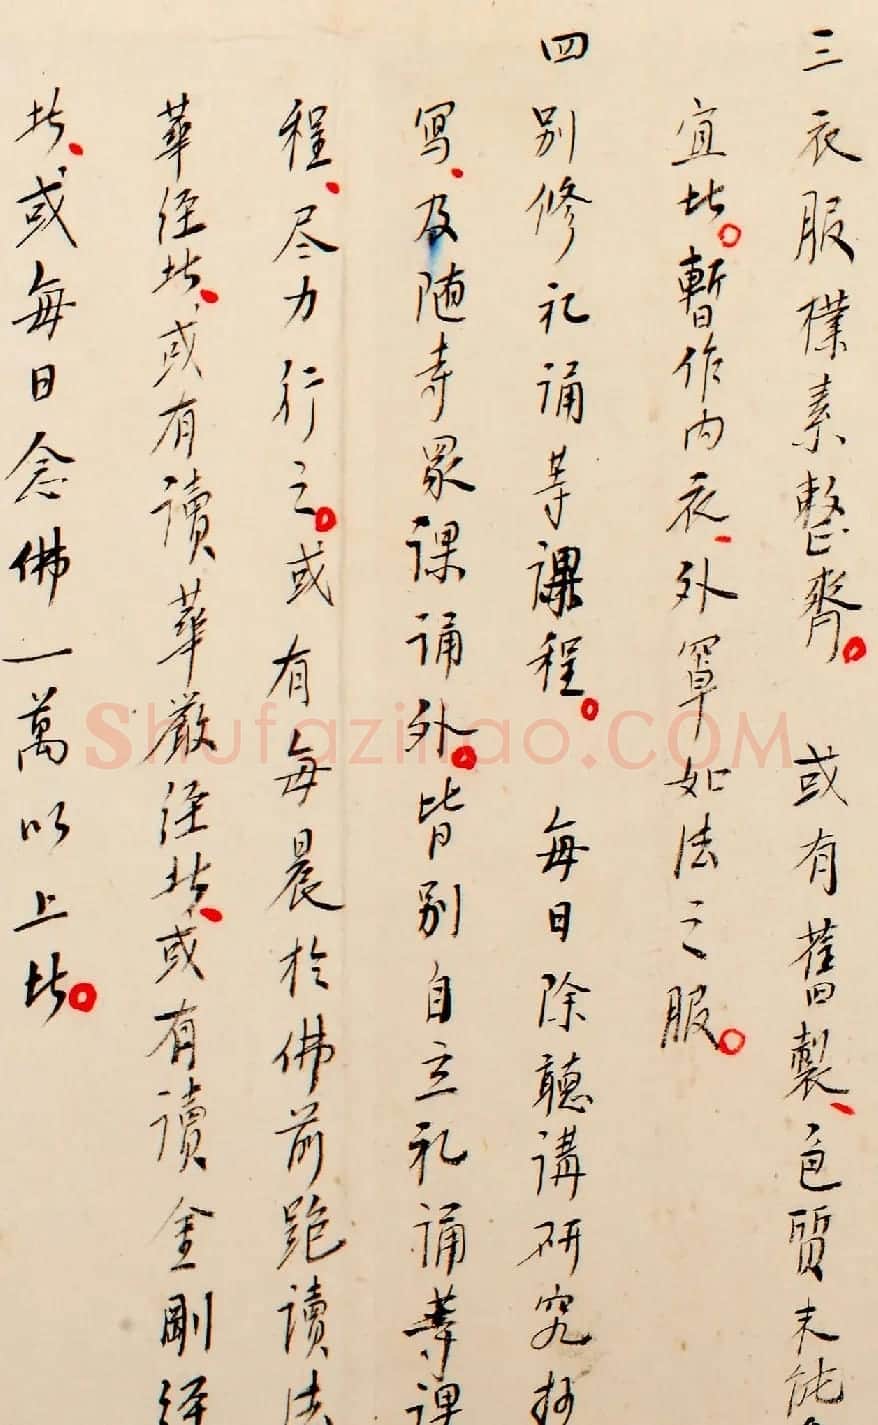 三 衣服樸素整齊。 或有舊製、色質未能
宜者。暫作內衣、外罩如法之服。
四 別修礼誦等課程。 每日除聽講研究抄
寫、及随寺眾課誦外。皆別自立礼誦等課
程、尽力行之。或有每晨於佛前跪读法
華经者、或有读華厳经者、或有读金剛经
者、或每日念佛一萬以上者。
Shufaziliao.COM